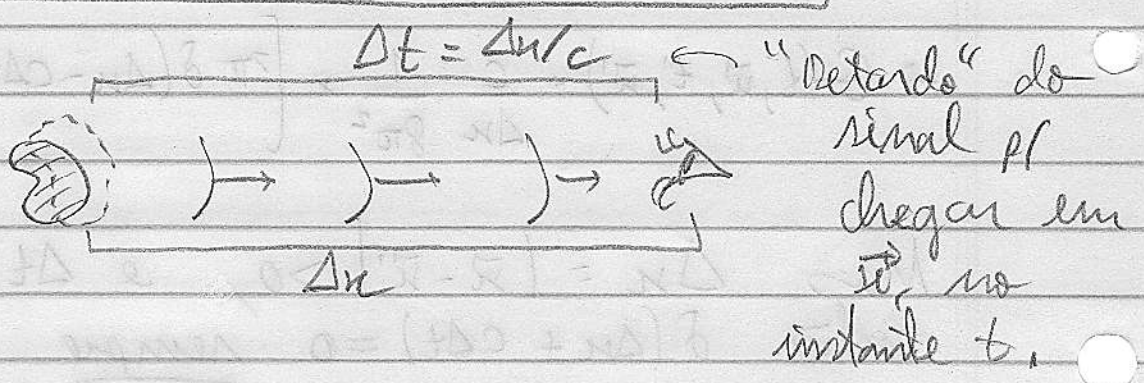 Δt = Δx/c ← "Retardo" do
sinal p/
chegar em
x⃗, no
instante t.
Δx